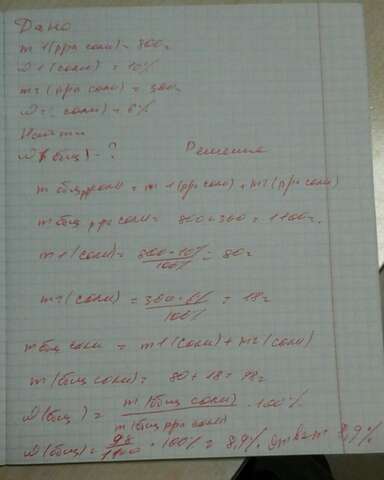 Дано
m1(рра соли) = 800г
ω1(соли) = 10%
m2(рра соли) = 300г
ω2(соли) = 6%
Найти
ω(общ) - ? Решение
m общ рра соли = m1(рра соли) + m2(рра соли)
m общ рра соли = 800+300 = 1100г.
m1(соли) = 800·10% / 100% = 80г
m2(соли) = 300·6% / 100% = 18г
m общ соли = m1(соли) + m2(соли)
m(общ соли) = 80 + 18 = 98г
ω(общ) = m(общ соли) / m(общ рра соли) · 100%
ω(общ) = 98 / 1100 · 100% = 8,9% Ответ 8,9%